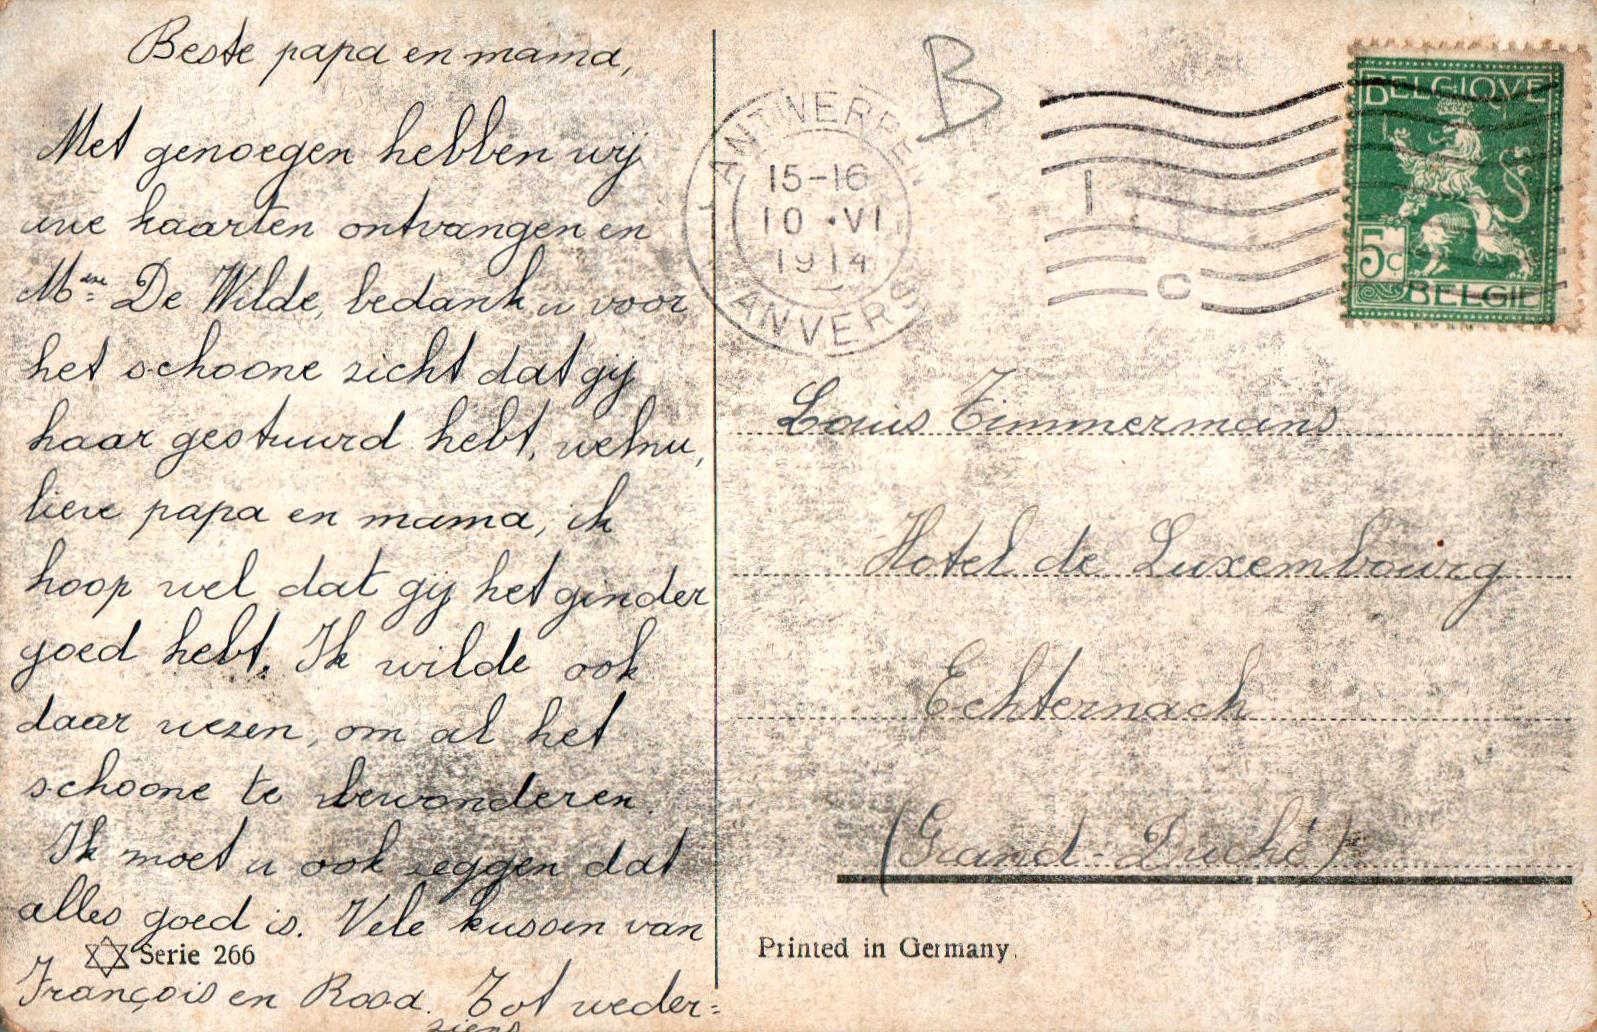 Beste papa en mama,
Met genoegen hebben wij
uwe kaarten ontvangen en
Mme De Wilde, bedankt u voor
het schoone zicht dat gij
haar gestuurd hebt, welnu,
lieve papa en mama, ik
hoop wel dat gij het ginder
goed hebt. Ik wilde ook
daar wezen, om al het
schoone te bewonderen.
Ik moet u ook zeggen dat
alles goed is. Vele kussen van
Serie 266
François en Rosa. Tot weder=
ziens
B
ANTWERPEN
15-16
10 · VI
1914
ANVERS
1
1 C
BELGIQUE
5c
BELGIË
Louis Timmermans
Hotel de Luxembourg
Echternach
(Grand-Duché)
Printed in Germany.